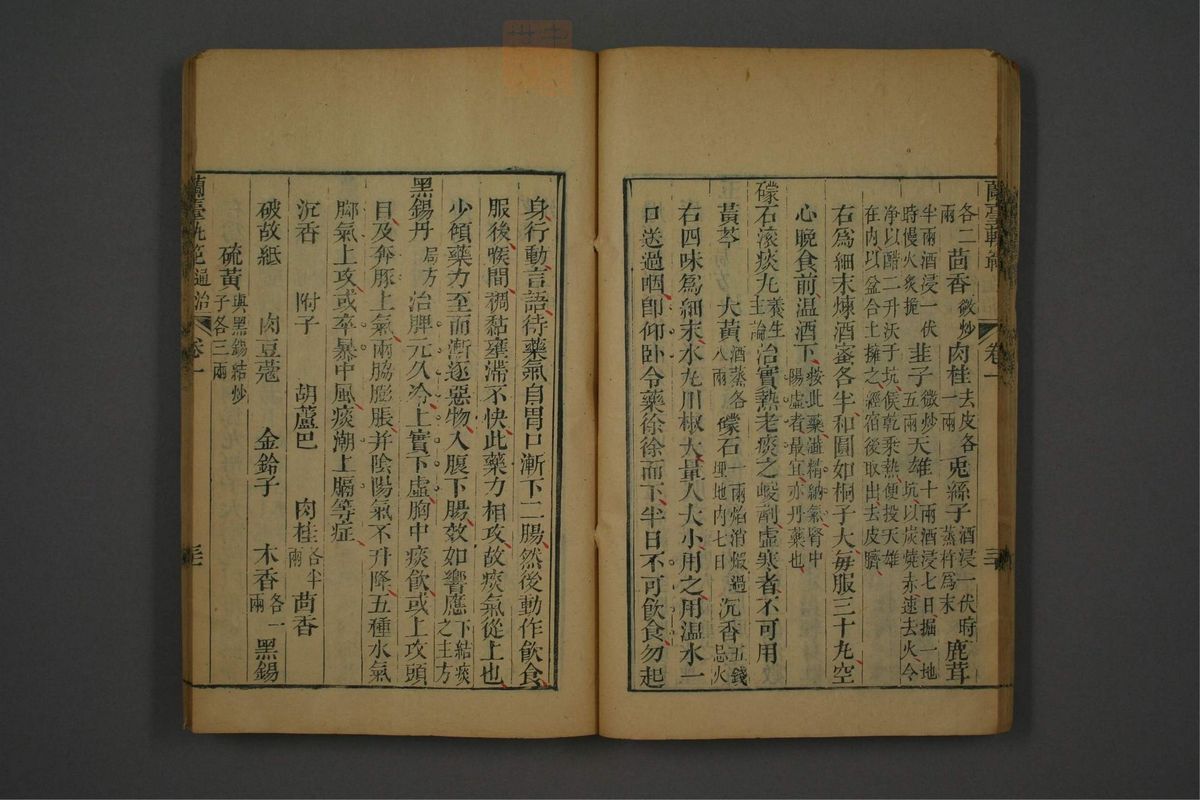 蘭臺軌範 卷一 三十
各二兩 茴香微炒 肉桂去皮各一兩 兎絲子酒浸一伏時蒸杵爲末 鹿茸
半兩酒浸一伏時慢火炙脆 韭子微炒五兩 天雄十兩酒浸七日掘一地坑以炭燒赤速去火令
净以醋二升沃于坑候乾乘熱便投天雄在内以盆合土擁之經宿後取出去皮臍
右爲細末煉酒蜜各半和圓如桐子大每服三十丸空
心晚食前温酒下按此藥澁精納氣腎中陽虛者最宜亦丹藥也
礞石滚痰丸養生主論治實熱老痰之峻劑虛寒者不可用
黃芩 大黃酒蒸各八兩 礞石一兩焰消煅過埋地内七日 沉香五錢忌火
右四味爲細末水丸川椒大量人大小用之用温水一
口送過咽卽仰卧令藥徐徐而下半日不可飲食勿起
身行動言語待藥氣自胃口漸下二腸然後動作飲食
服後喉間稠黏壅滯不快此藥力相攻故痰氣從上也
少頃藥力至而漸逐惡物入腹下腸效如響應下結痰之主方
黑錫丹局方治脾元久冷上實下虛胸中痰飲或上攻頭
目及奔豚上氣兩脇膨脹并陰陽氣不升降五種水氣
脚氣上攻或卒暴中風痰潮上膈等症
沉香 附子 胡蘆巴 肉桂各半兩 茴香
破故紙 肉豆蔻 金鈴子 木香各一兩 黑錫
硫黃與黑錫結炒子各三兩
蘭臺軌範通治 卷一 三十